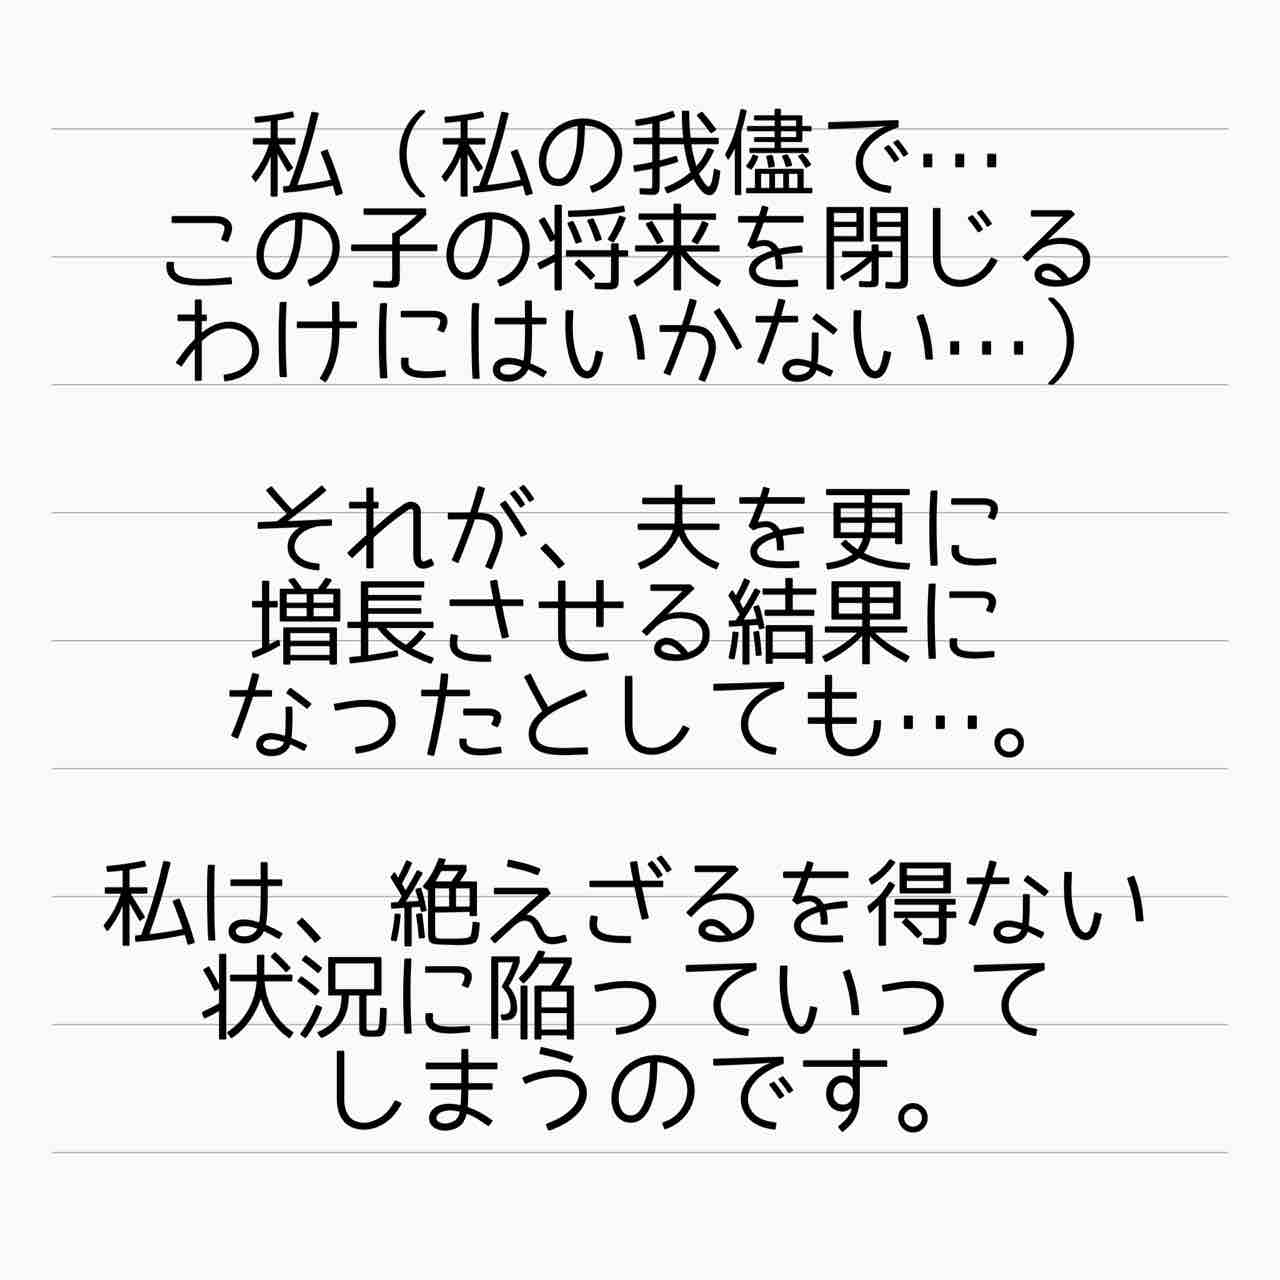 私（私の我儘で…
この子の将来を閉じる
わけにはいかない…）
それが、夫を更に
増長させる結果に
なったとしても…。
私は、絶えざるを得ない
状況に陥っていって
しまうのです。